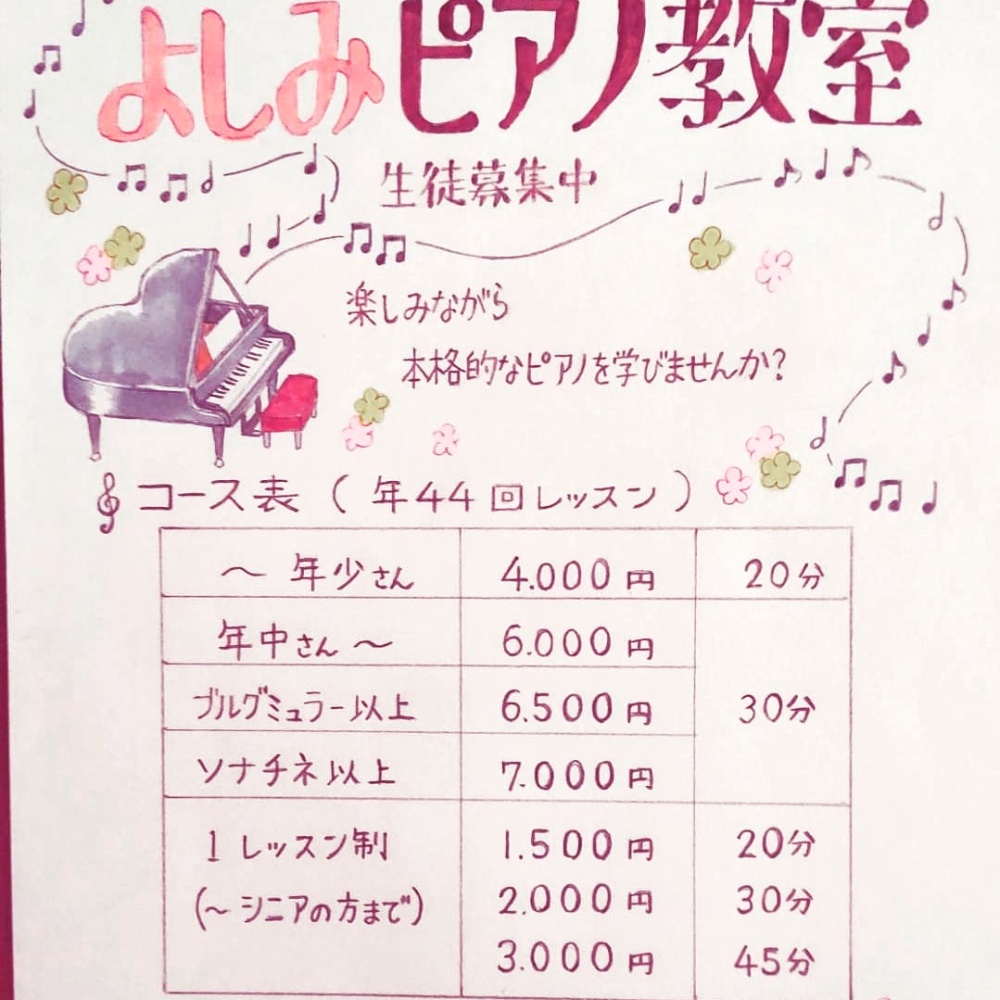 よしみピアノ教室
生徒募集中
楽しみながら
本格的なピアノを学びませんか?
コース表 ( 年44回レッスン )
〜 年少さん 4.000円 20分
年中さん 〜 6.000円
ブルグミュラー以上 6.500円 30分
ソナチネ以上 7.000円
1 レッスン制 1.500円 20分
(〜シニアの方まで) 2.000円 30分
3.000円 45分